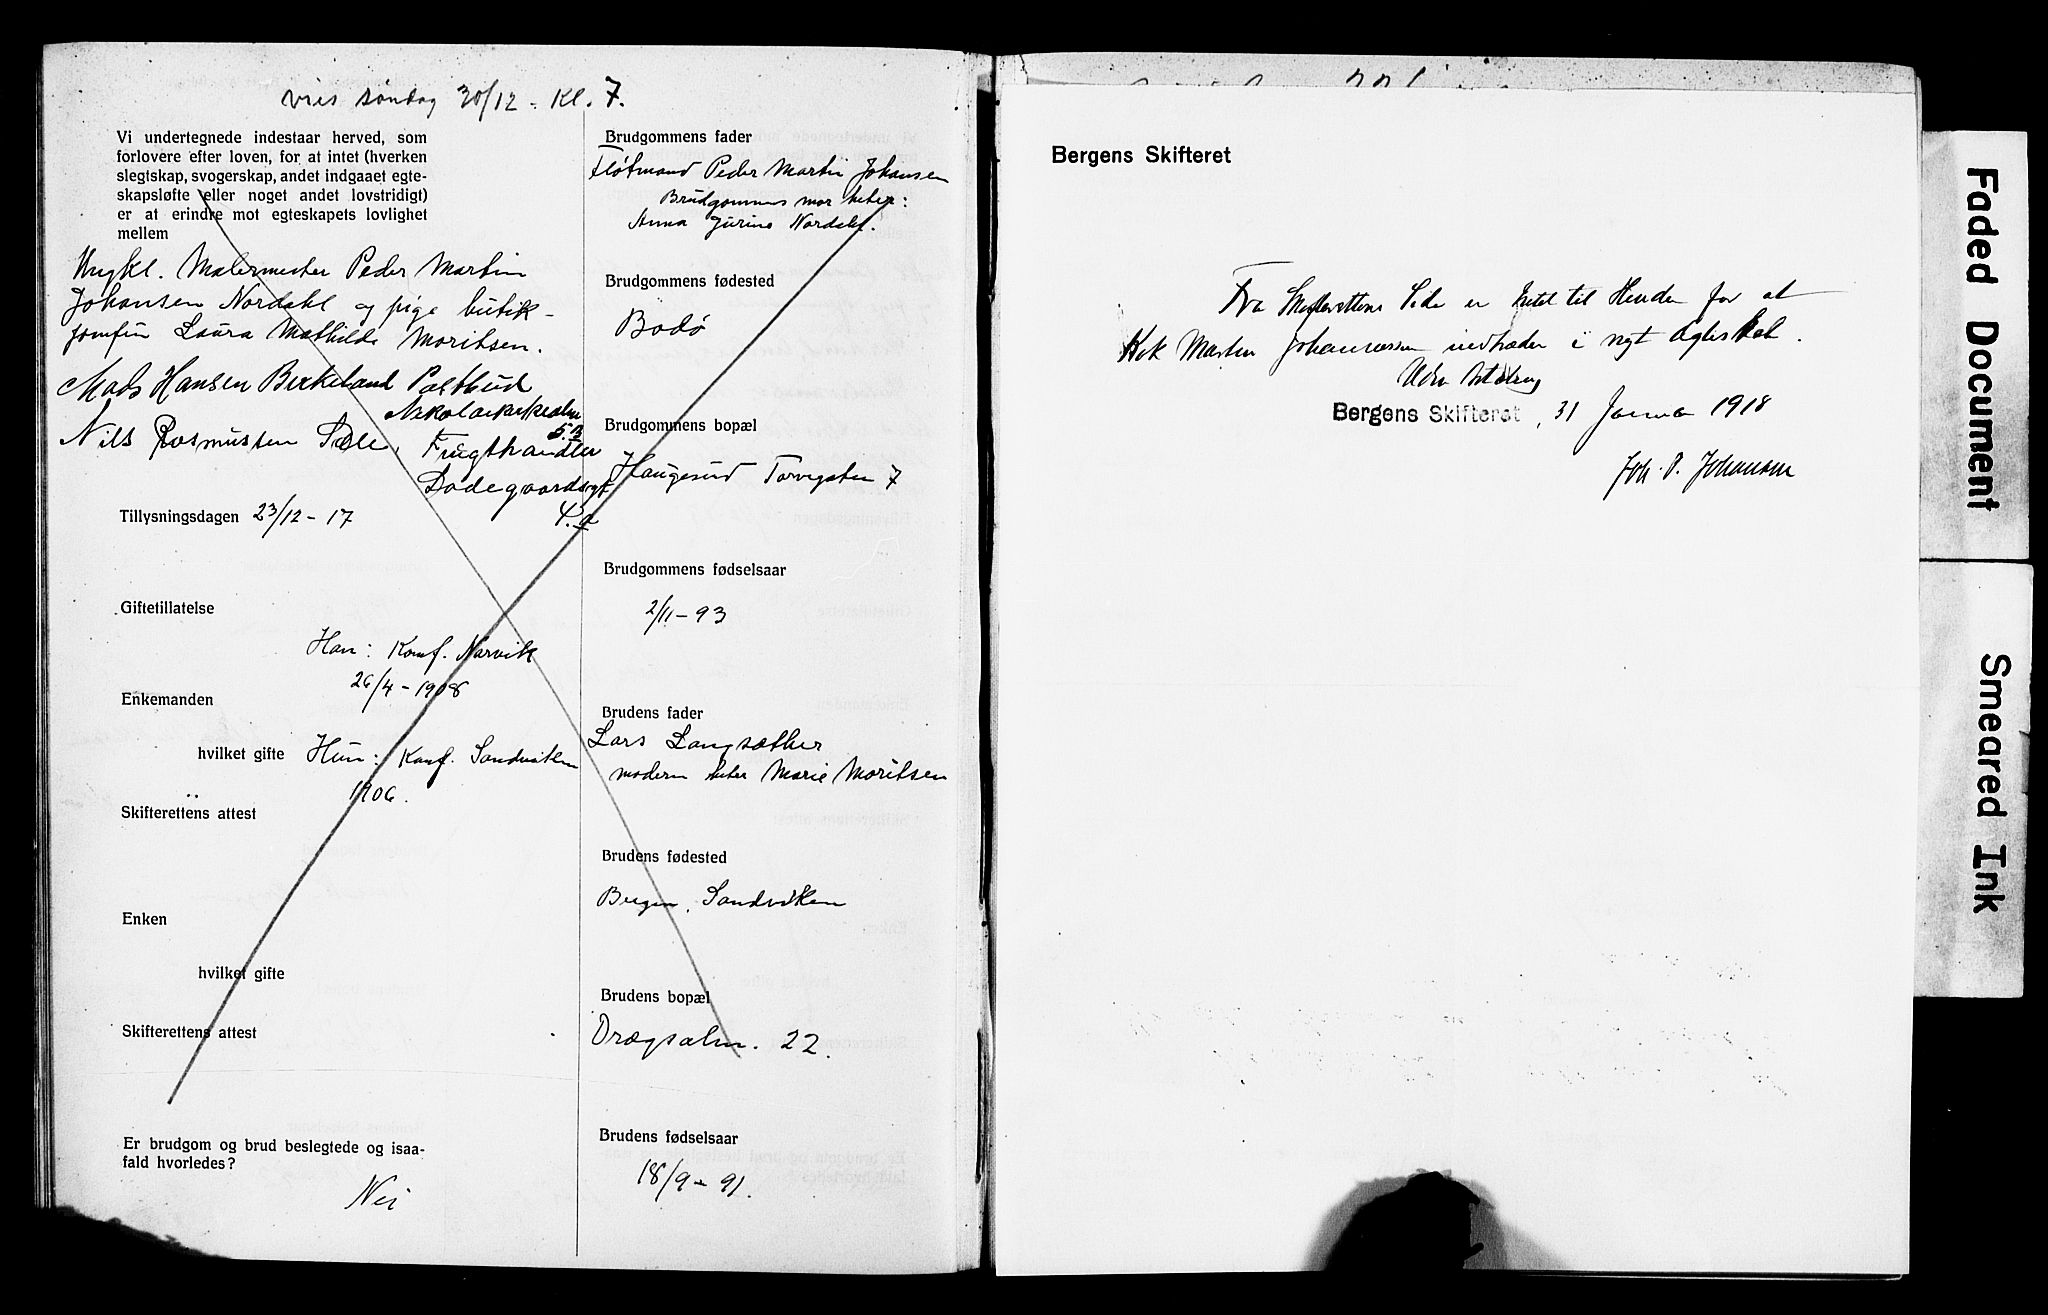 vies søndag 30/12 - Kl. 7.
Vi undertegnede indestaar herved, som
forlovere efter loven, for at intet (hverken
slegtskap, svogerskap, andet indgaaet egte-
skapsløfte eller noget andet lovstridigt)
er at erindre mot egteskapets lovlighet
mellem
Ungkl. Malermester Peder Martin
Johansen Nordahl og pige butik-
jomfru Laura Mathilde Moritsen.
Mads Hansen Birkeland Postbud
Nikolaikirkealm
5 B
Nils Rasmussen Frugthandler
Dodegaardsgt
4. a
Tillysningsdagen 23/12 - 17
Giftetillatelse
Han: Konf. Narvik
26/4 - 1908
Enkemanden
hvilket gifte Hun: Konf. Sandviken
1906.
Skifterettens attest
Enken
hvilket gifte
Skifterettens attest
Er brudgom og brud beslegtede og isaa-
fald hvorledes?
Nei
Brudgommens fader
Fløtmand Peder Martin Johansen
Brudgommens mor heter:
Anna Jurine Nordahl.
Brudgommens fødested
Bodø
Brudgommens bopæl
Haugesund Torvegaten 7
Brudgommens fødselsaar
2/11 - 93
Brudens fader
Lars Langsæther
modern heter Marie Moritsen
Brudens fødested
Bergen, Sandviken
Brudens bopæl
Drægsalm. 22.
Brudens fødselsaar
18/9 - 91.
Bergens Skifteret
Fra Skifterettens Side er intet til Hinder for at
Martin Johannessen indtræder i nyt Ægteskab.
Bergens Skifteret, 31 Januar 1918
Joh. P. Johansen
Faded Document
Smeared Ink